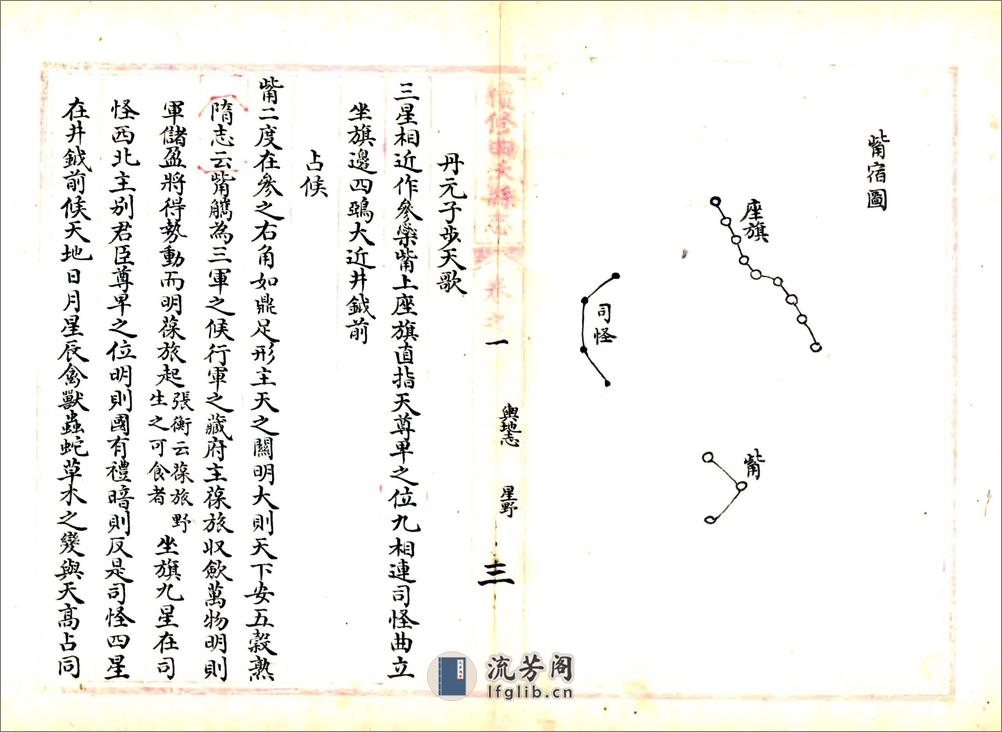 觜宿圖
座旗
司怪
觜
續修曲沃縣志
卷之一
輿地志
星野
三
丹元子步天歌
三星相近作參蘂觜上座旗直指天尊卑之位九相連司怪曲立
坐旗邊四鴉大近井鉞前
占候
觜二度在參之右角如鼎足形主天之關明大則天下安五穀熟
隋志云觜觿為三軍之候行軍之藏府主葆旅収歛萬物明則
軍儲盈將得勢動而明葆旅起張衡云葆旅野生之可食者坐旗九星在司
怪西北主别君臣尊卑之位明則國有禮暗則反是司怪四星
在井鉞前候天地日月星辰禽獸蟲蛇草木之變與天高占同
流芳阁
lfglib.cn